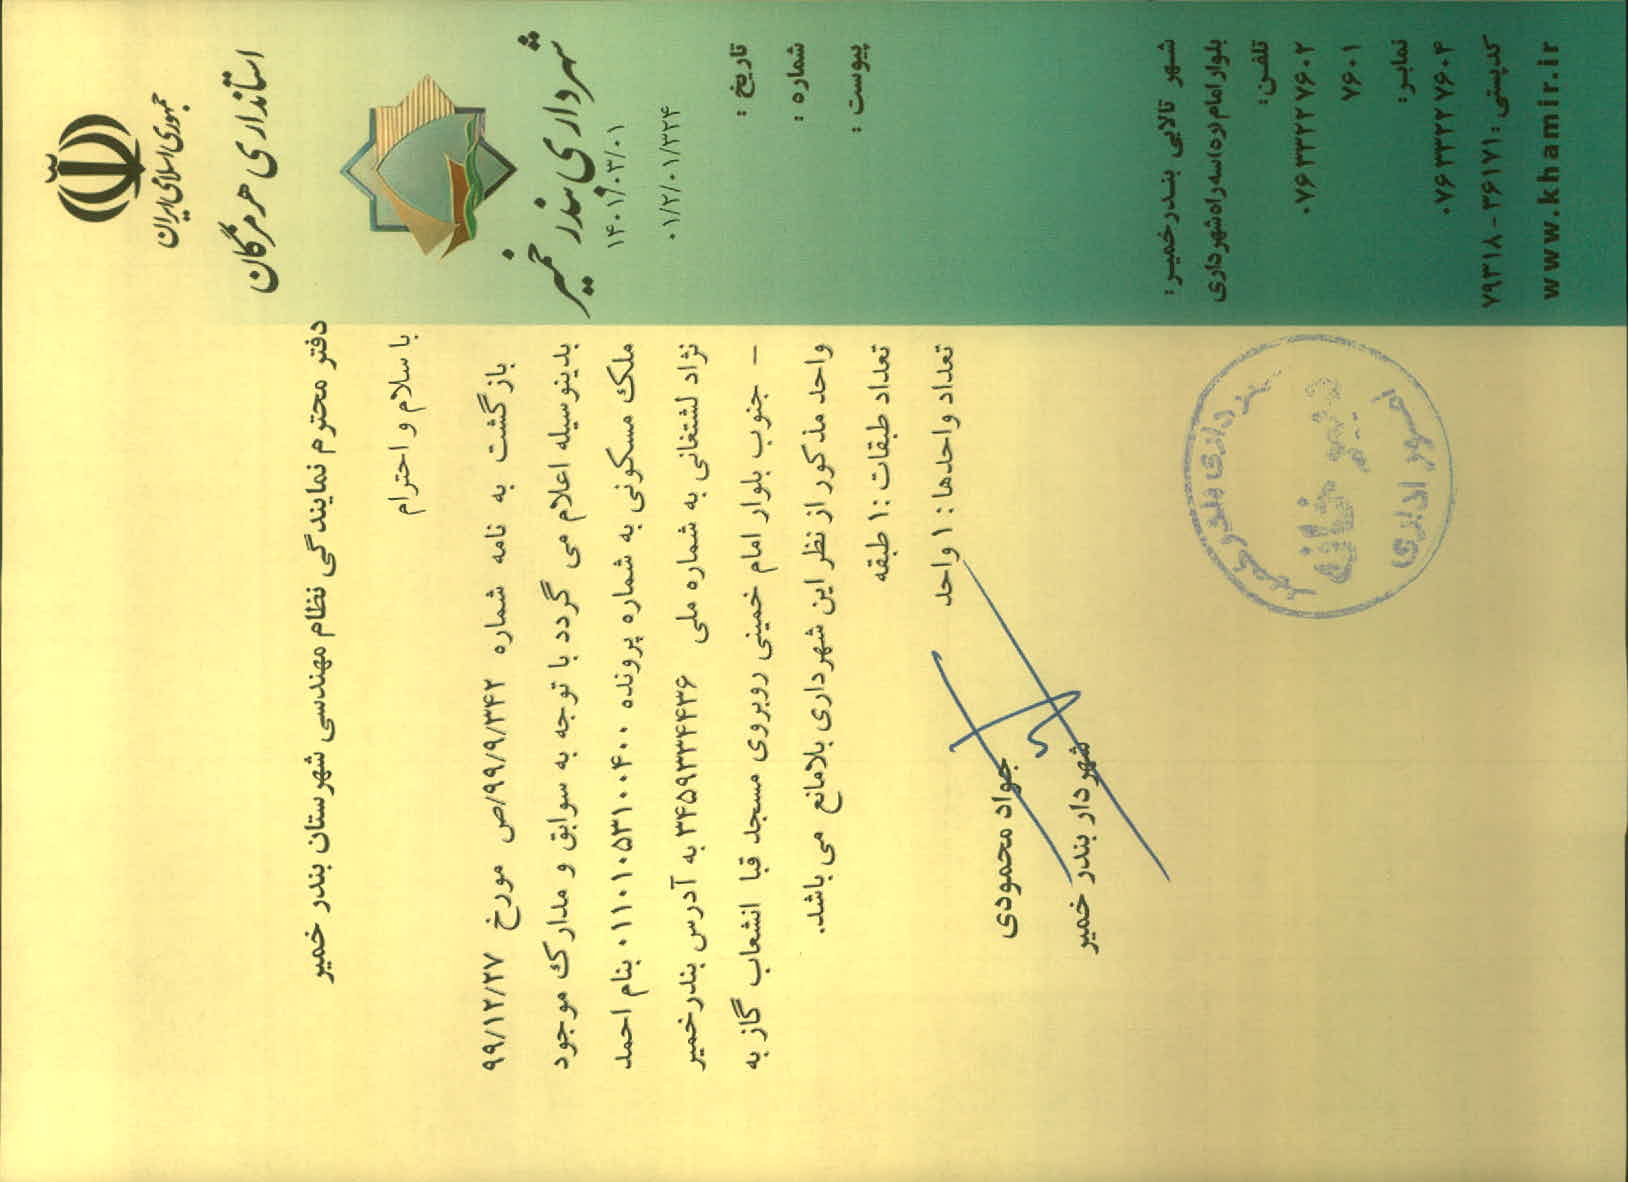 جمهوری اسلامی ایران
استانداری هرمزگان
شهرداری بندر خمیر
۱۴۰۱/۰۳/۰۱
۰۱/۲/۰۱/۳۲۴
تاریخ :
شماره :
پیوست :
دفتر محترم نمایندگی نظام مهندسی شهرستان بندر خمیر
با سلام و احترام
بازگشت به نامه شماره ۹۹/۹/۳۴۲/ص مورخ ۹۹/۱۲/۲۷
بدینوسیله اعلام می گردد با توجه به سوابق و مدارک موجود
ملک مسکونی به شماره پرونده ۰۱۱۰۱۰۵۳۱۰۰۴۰۰ بنام احمد
نژاد لشتغانی به شماره ملی ۳۴۵۹۳۳۴۴۳۶ به آدرس بندرخمیر
– جنوب بلوار امام خمینی روبروی مسجد قبا انشعاب گاز به
واحد مذکور از نظر این شهرداری بلامانع می باشد.
تعداد طبقات :۱ طبقه
تعداد واحدها : ۱ واحد
جواد محمودی
شهردار بندر خمیر
شهرداری بندر خمیر
دبیرخانه
امور اداری
شهر تالابی بندرخمیر:
بلوار امام (ره) سه راه شهرداری
تلفن:
۰۷۶۳۳۲۲۷۶۰۲
۷۶۰۱
نمابر:
۰۷۶۳۳۲۲۷۶۰۴
کدپستی : ۳۶۱۷۱ - ۷۹۳۱۸
www.khamir.ir